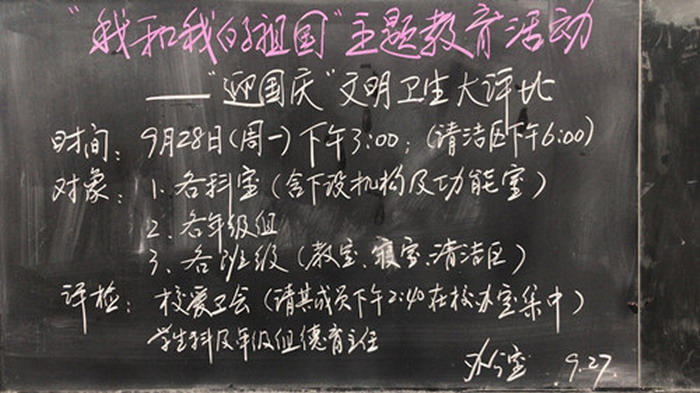 "我和我的祖国"主题教育活动
——"迎国庆"文明卫生大评比
时间：9月28日(周一)下午3:00；(清洁区下午6:00)
对象：1、各科室(含下设机构及功能室)
2、各年级组
3、各班级(教室、寝室、清洁区)
评检：校爱卫会(请其成员下午2:40在校办室集中)
学生科及年级组德育主任
办公室 9.27.